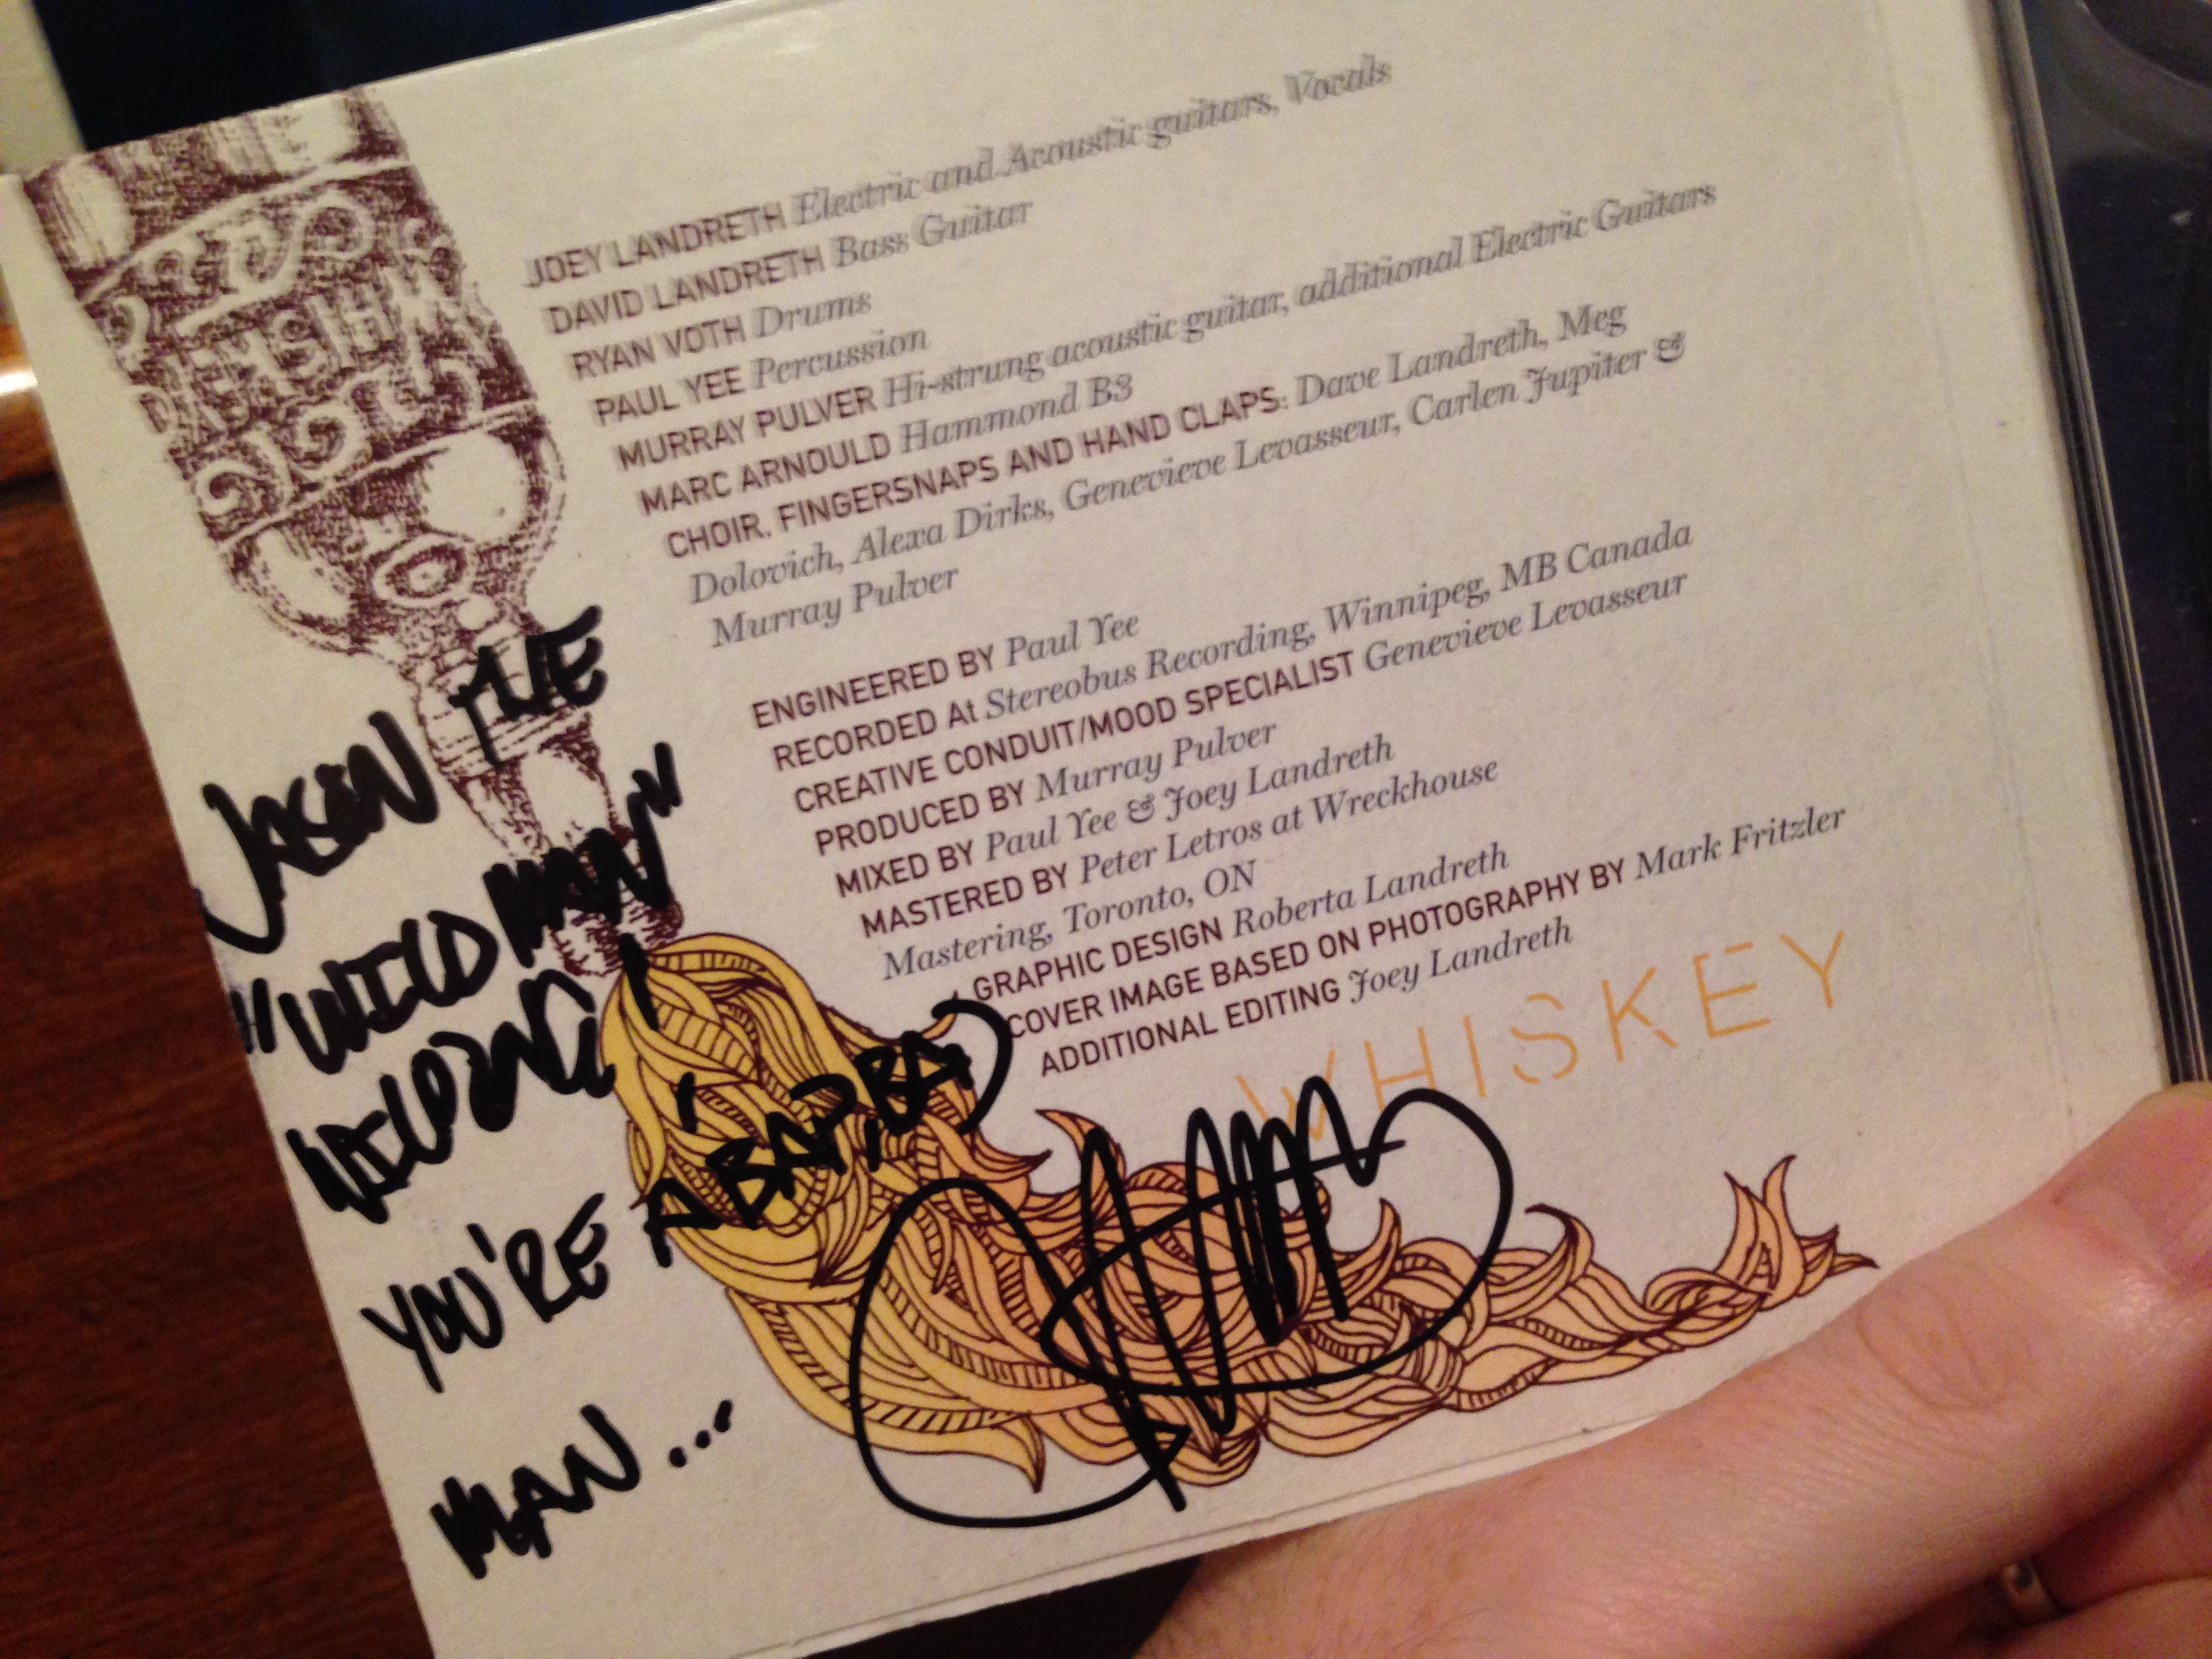 JOEY LANDRETH Electric and Acoustic guitars, Vocals
DAVID LANDRETH Bass Guitar
RYAN VOTH Drums
PAUL YEE Percussion
MURRAY PULVER Hi-strung acoustic guitar, additional Electric Guitars
MARC ARNOULD Hammond B3
CHOIR. FINGERSNAPS AND HAND CLAPS: Dave Landreth, Meg
Dolovich, Alexa Dirks, Genevieve Levasseur, Carlen Jupiter &
Murray Pulver
ENGINEERED BY Paul Yee
RECORDED At Stereobus Recording, Winnipeg, MB Canada
CREATIVE CONDUIT/MOOD SPECIALIST Genevieve Levasseur
PRODUCED BY Murray Pulver
MIXED BY Paul Yee & Joey Landreth
MASTERED BY Peter Letros at Wreckhouse
Mastering, Toronto, ON
GRAPHIC DESIGN Roberta Landreth
COVER IMAGE BASED ON PHOTOGRAPHY BY Mark Fritzler
ADDITIONAL EDITING Joey Landreth
WHISKEY
JASON THE
"WILD MAN"
WILDING!
YOU'RE A BAD, BAD
MAN...